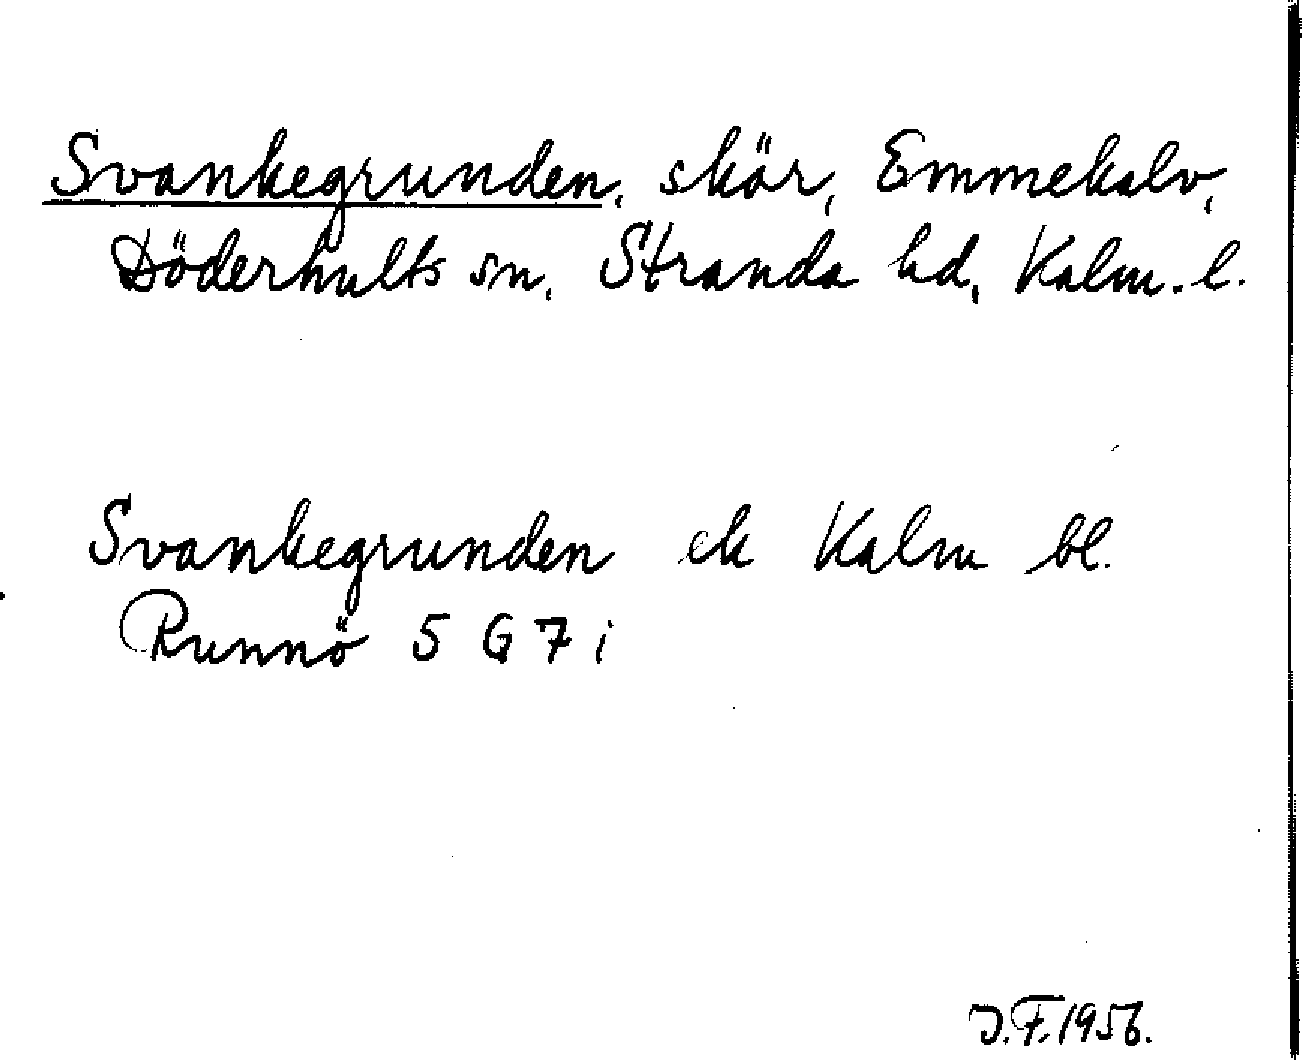 Svankegrunden, skär, Emmekalv,
Döderhults sn, Stranda hd, Kalm. l.
Svankegrunden ek Kalm bl.
Runnö 5 G 7 i
J.F. 1956.